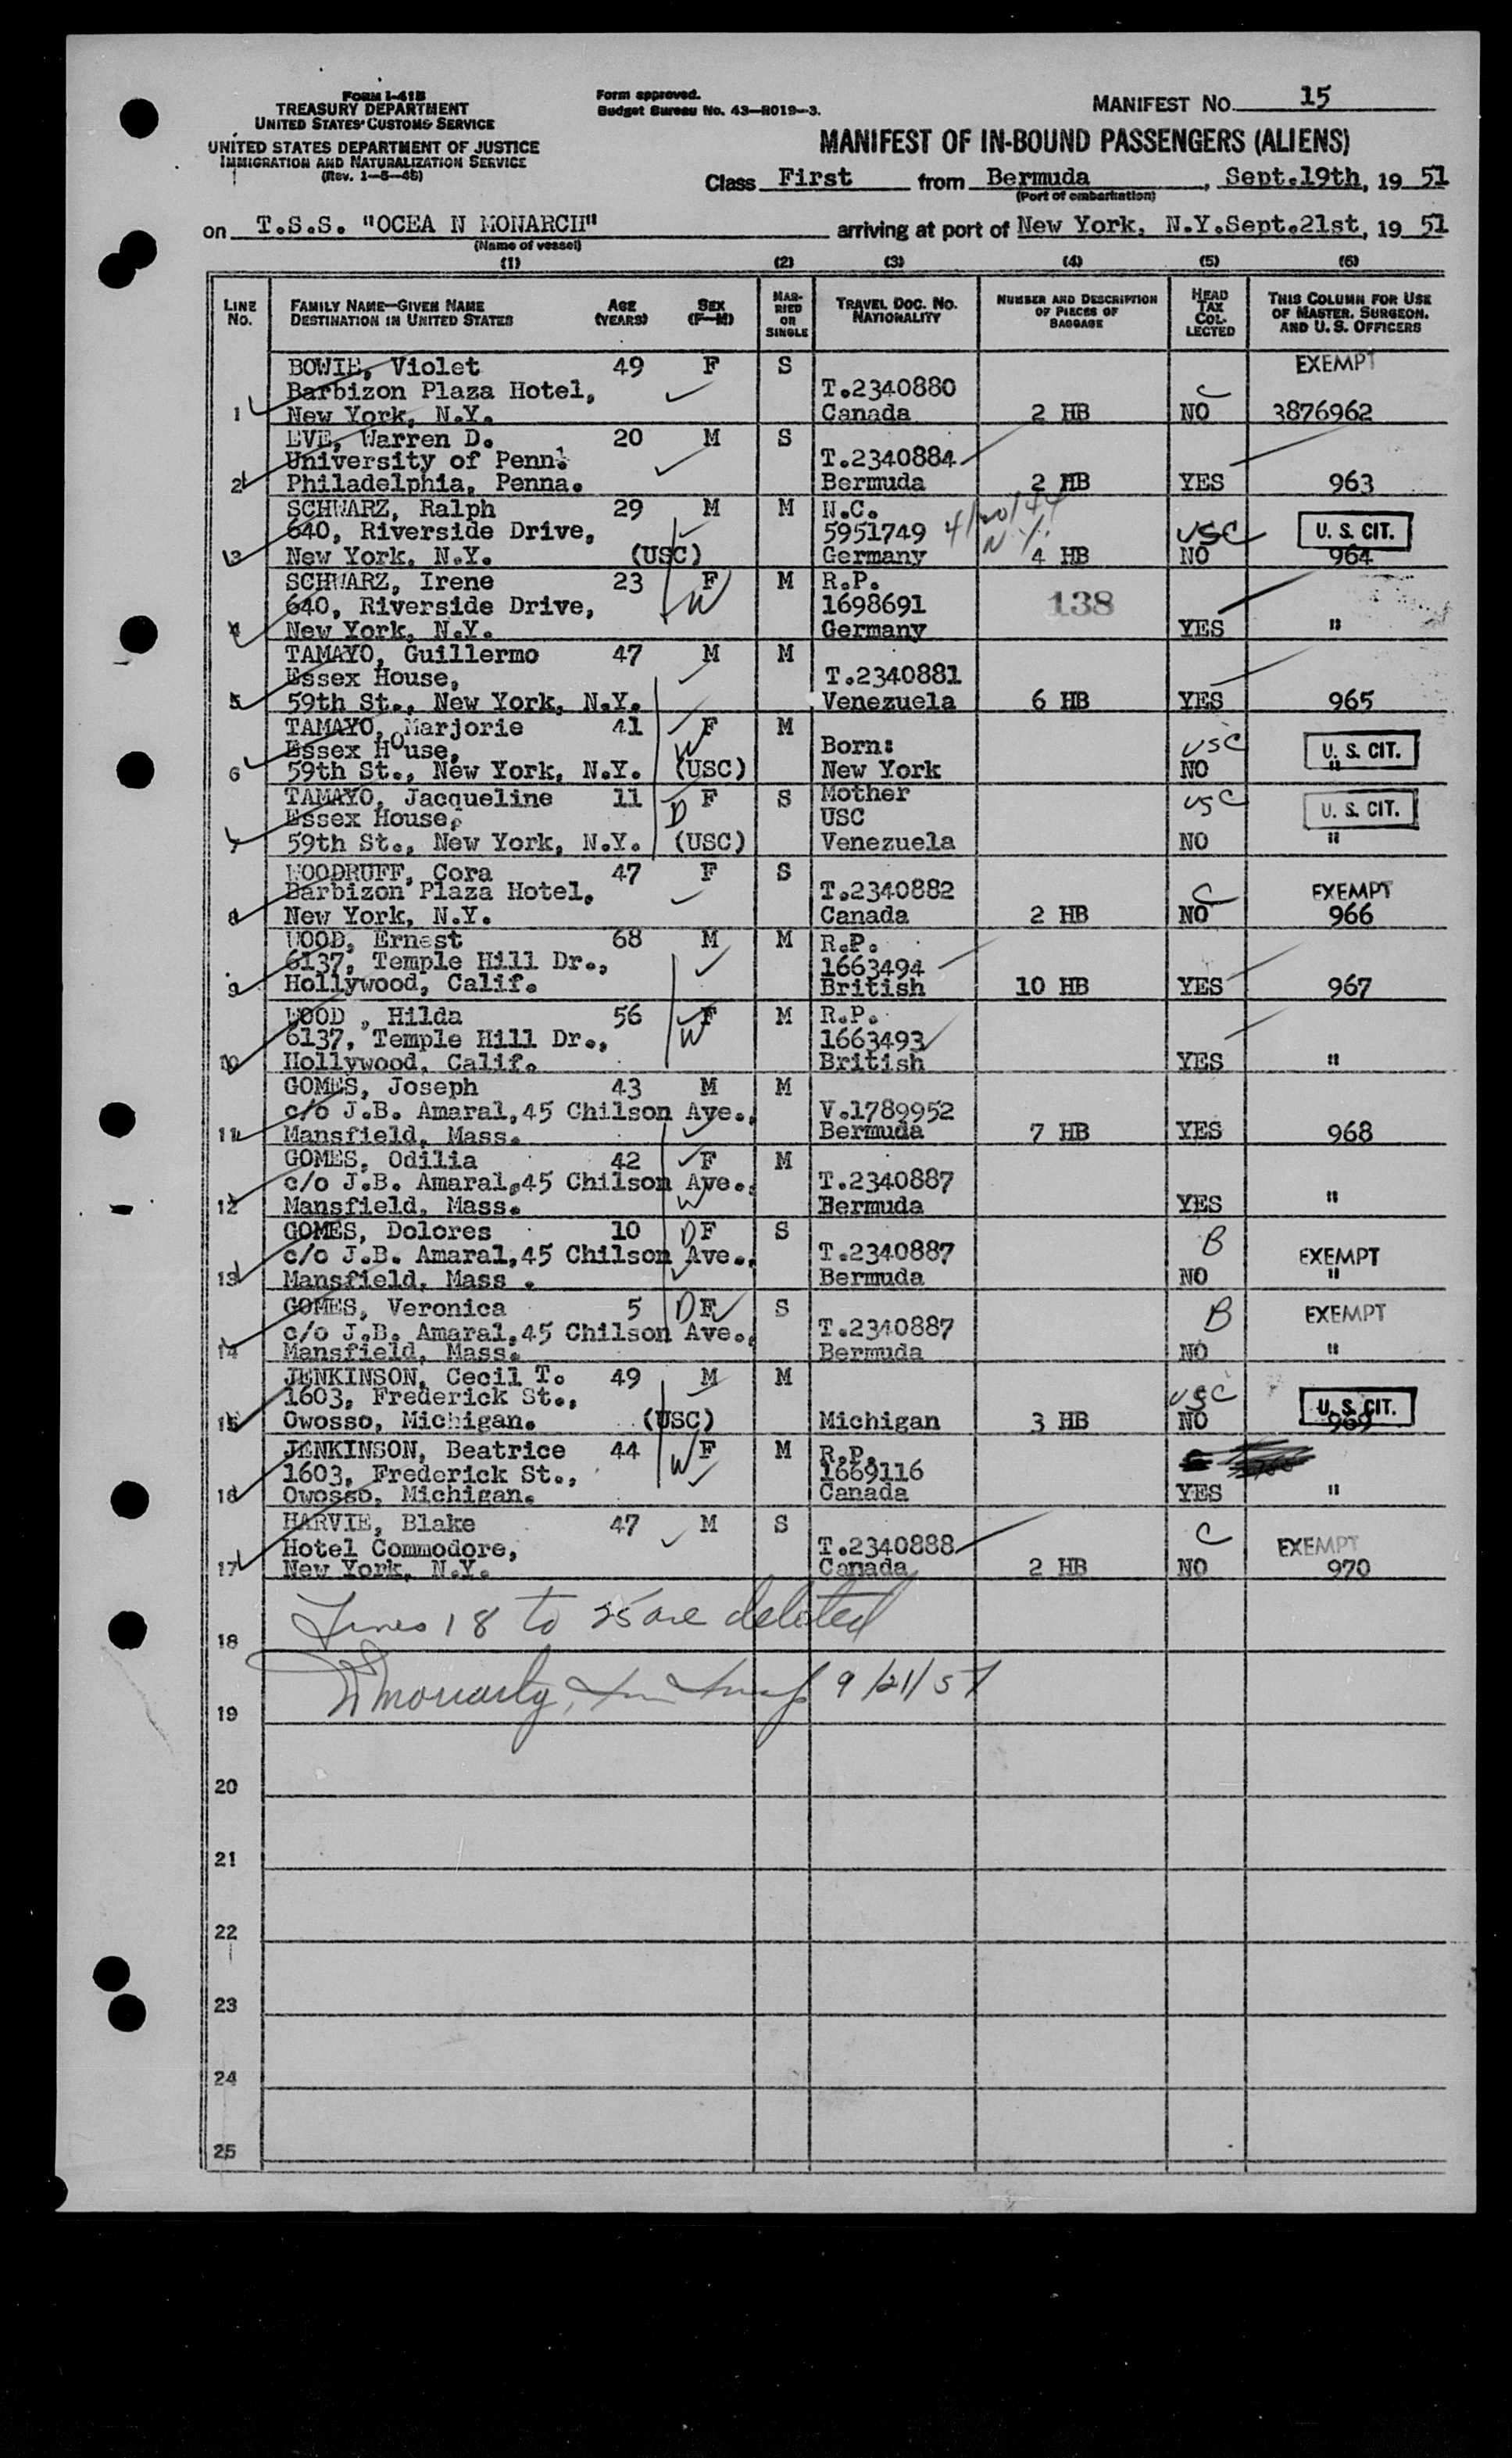 FORM I-415
TREASURY DEPARTMENT
UNITED STATES CUSTOMS SERVICE
UNITED STATES DEPARTMENT OF JUSTICE
IMMIGRATION AND NATURALIZATION SERVICE
(Rev. 1-5-45)
Form approved.
Budget Bureau No. 43-R019-3.
MANIFEST NO. 15
MANIFEST OF IN-BOUND PASSENGERS (ALIENS)
Class First from Bermuda, Sept.19th, 19 51
(Port of embarkation)
on T.S.S. "OCEA N MONARCH" arriving at port of New York, N.Y.Sept.21st, 19 51
(Name of vessel)
(1) (2) (3) (4) (5) (6)
LINE NO. FAMILY NAME—GIVEN NAME DESTINATION IN UNITED STATES AGE (YEARS) SEX (F—M) MARRIED OR SINGLE TRAVEL DOC. NO. NATIONALITY NUMBER AND DESCRIPTION OF PIECES OF BAGGAGE HEAD TAX COLLECTED THIS COLUMN FOR USE OF MASTER, SURGEON, AND U. S. OFFICERS
BOWIE, Violet 49 F S EXEMPT
Barbizon Plaza Hotel, T.2340880 C
1 New York, N.Y. Canada 2 HB NO 3876962
EVE, Warren D. 20 M S
University of Penn. T.2340884
2 Philadelphia, Penna. Bermuda 2 HB YES 963
SCHWARZ, Ralph 29 M M N.C.
640, Riverside Drive, 5951749 4/20/44 USC U. S. CIT.
3 New York, N.Y. (USC) Germany N.Y. 4 HB NO 964
SCHWARZ, Irene 23 F M R.P.
640, Riverside Drive, W 1698691 138
4 New York, N.Y. Germany YES "
TAMAYO, Guillermo 47 M M
Essex House, T.2340881
5 59th St., New York, N.Y. Venezuela 6 HB YES 965
TAMAYO, Marjorie 41 F M
Essex House, W Born: USC U. S. CIT.
6 59th St., New York, N.Y. (USC) New York NO "
TAMAYO, Jacqueline 11 F S Mother USC
Essex House, D USC U. S. CIT.
7 59th St., New York, N.Y. (USC) Venezuela NO "
WOODRUFF, Cora 47 F S
Barbizon Plaza Hotel, T.2340882 C EXEMPT
8 New York, N.Y. Canada 2 HB NO 966
WOOD, Ernest 68 M M R.P.
6137, Temple Hill Dr., 1663494
9 Hollywood, Calif. British 10 HB YES 967
WOOD , Hilda 56 F M R.P.
6137, Temple Hill Dr., W 1663493
10 Hollywood, Calif. British YES "
GOMES, Joseph 43 M M
c/o J.B. Amaral,45 Chilson Ave., V.1789952
11 Mansfield, Mass. Bermuda 7 HB YES 968
GOMES, Odilia 42 F M
c/o J.B. Amaral,45 Chilson Ave., T.2340887
12 Mansfield, Mass. W Bermuda YES "
GOMES, Dolores 10 D F S B
c/o J.B. Amaral,45 Chilson Ave., T.2340887 EXEMPT
13 Mansfield, Mass . Bermuda NO "
GOMES, Veronica 5 D F S B EXEMPT
c/o J.B. Amaral,45 Chilson Ave., T.2340887
14 Mansfield, Mass. Bermuda NO "
JENKINSON, Cecil T. 49 M M
1603, Frederick St., USC U. S. CIT.
15 Owosso, Michigan. (USC) Michigan 3 HB NO 969
JENKINSON, Beatrice 44 F M R.P.
1603, Frederick St., W 1669116
16 Owosso, Michigan. Canada YES "
HARVIE, Blake 47 M S C
Hotel Commodore, T.2340888 EXEMPT
17 New York, N.Y. Canada 2 HB NO 970
Lines 18 to 25 are deleted
18
Moriarty, 9/21/51
19
20
21
22
23
24
25